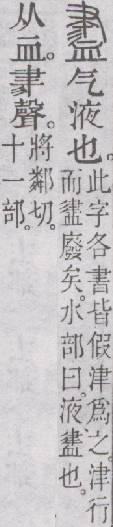 𧗁气液也。此字各書皆假津爲之。津行
而𧗁廢矣。水部曰。液𧗁也。
从血。𦘔聲。將鄰切。
十一部。